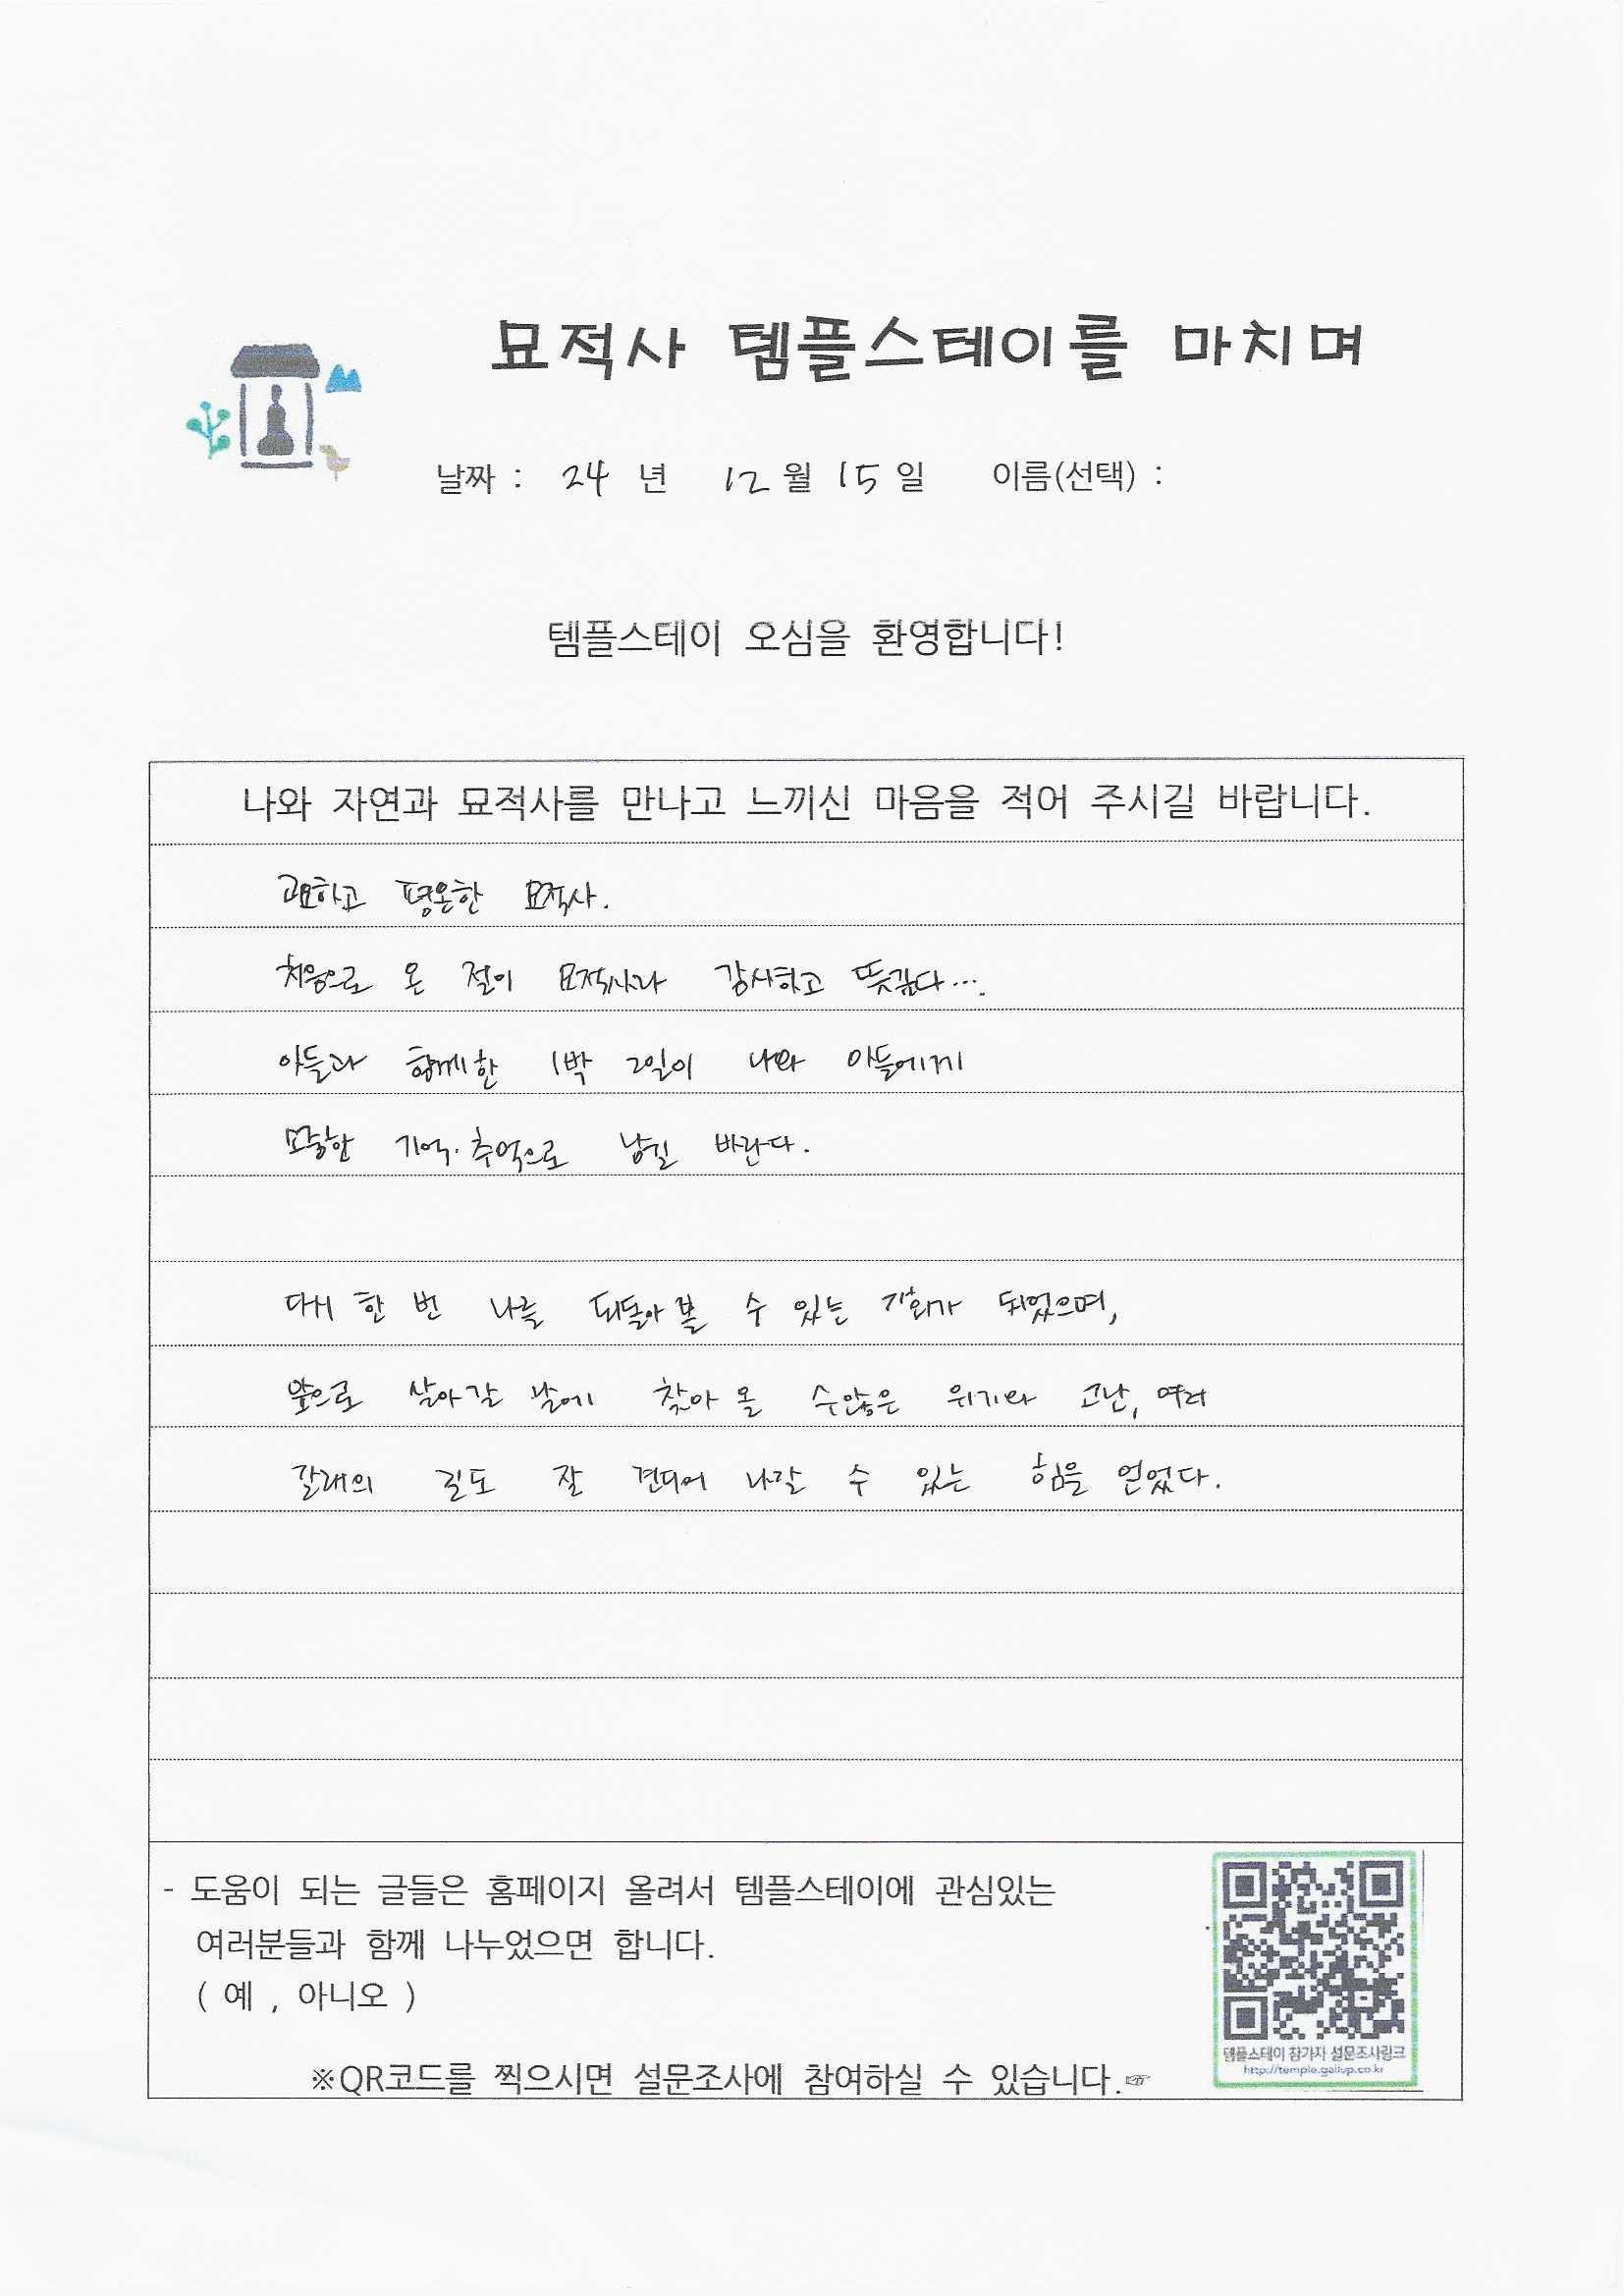 묘적사 템플스테이를 마치며
날짜 : 24 년 12 월 15 일 이름(선택) :
템플스테이 오심을 환영합니다!
나와 자연과 묘적사를 만나고 느끼신 마음을 적어 주시길 바랍니다.
고요하고 평온한 묘적사.
처음으로 온 절이 묘적사라 감사하고 뜻깊다....
아들과 함께한 1박 2일이 나와 아들에게
모출한 기억·추억으로 남길 바란다.
다시 한 번 나를 되돌아 볼 수 있는 기회가 되었으며,
앞으로 살아갈 날에 찾아 올 수많은 위기와 고난, 여러
갈래의 길도 잘 견디어 나갈 수 있는 힘을 얻었다.
- 도움이 되는 글들은 홈페이지 올려서 템플스테이에 관심있는
여러분들과 함께 나누었으면 합니다.
( 예 , 아니오 )
템플스테이 참가자 설문조사링크
http://temple.gallup.co.kr
※QR코드를 찍으시면 설문조사에 참여하실 수 있습니다.☞